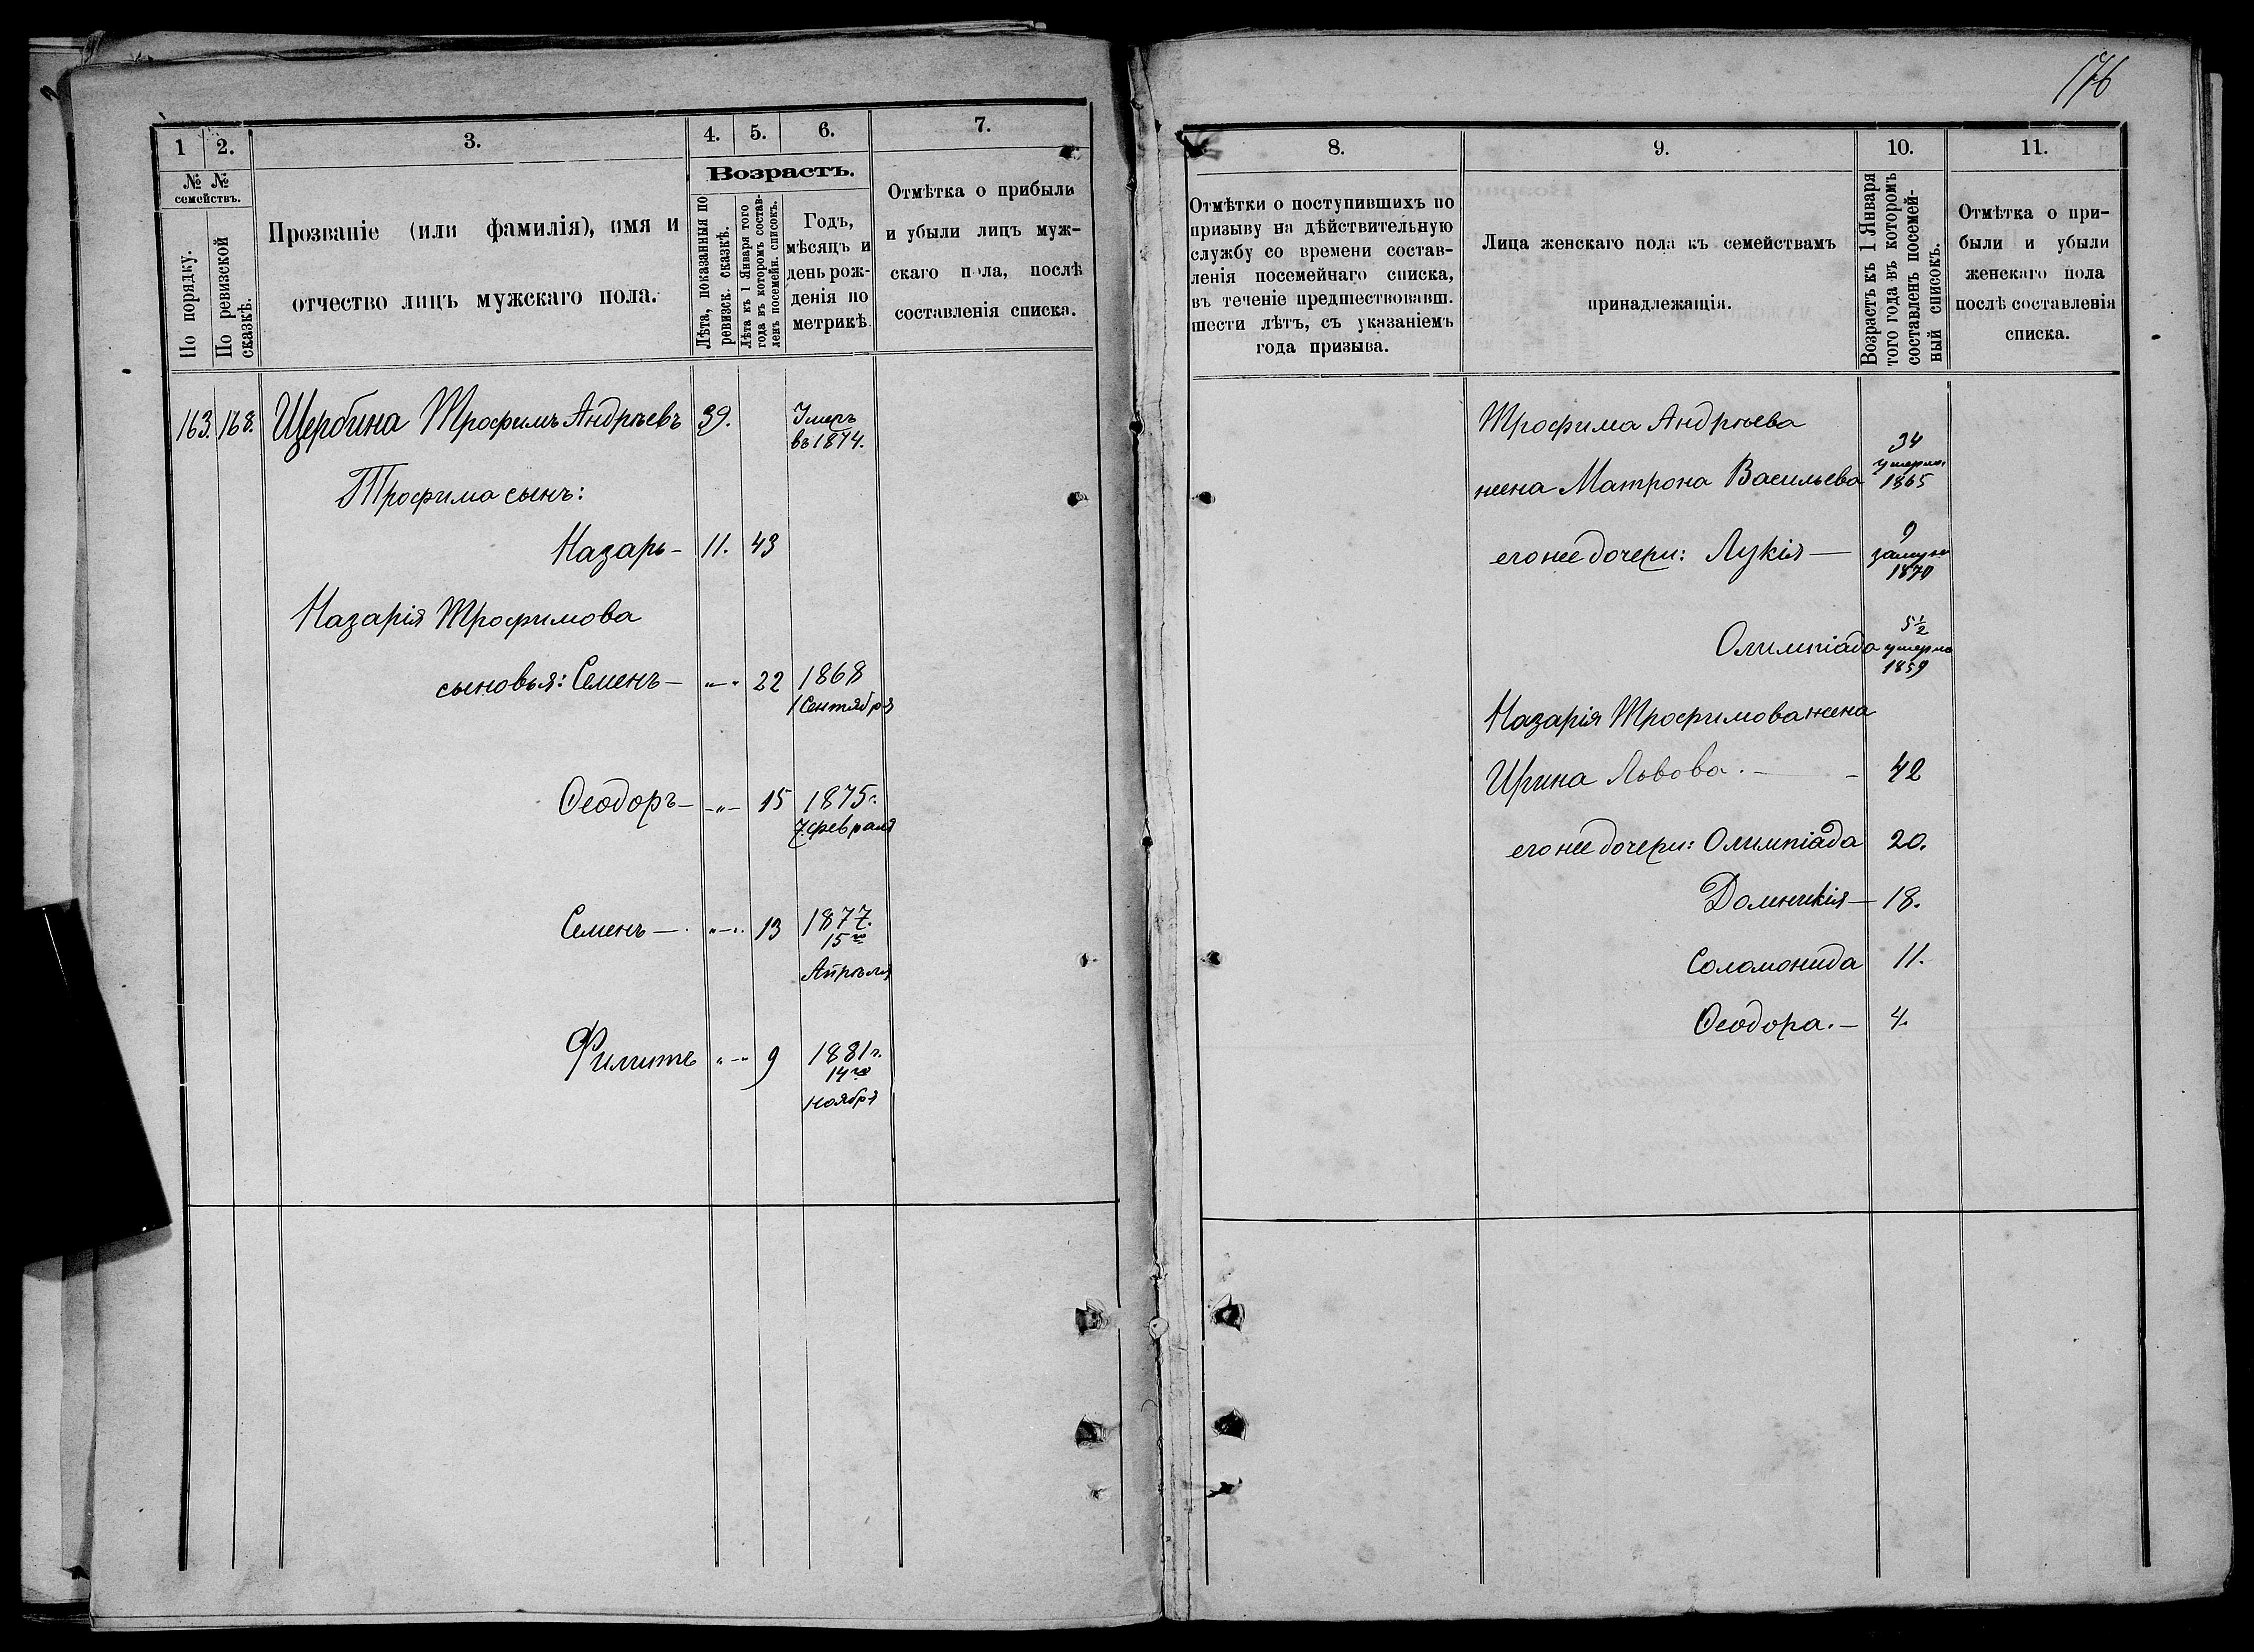 176
1 2. 3. 4. 5. 6. 7.
№ № семействъ.
По порядку.
По ревизской сказкѣ.
Прозваніе (или фамилія), имя и
отчество лицъ мужскаго пола.
Возрастъ.
Лѣта, показанныя по
ревизск. сказкѣ.
Лѣта къ 1 Января того
года въ которомъ состав-
ленъ посемейн. списокъ.
Годъ,
мѣсяцъ и
день рож-
денія по
метрикѣ.
Отмѣтка о прибыли
и убыли лицъ муж-
скаго пола, послѣ
составленія списка.
163. 168. Щербина Трофимъ Андрѣевъ 39. Умеръ
въ 1874.
Трофима сынъ:
Назарь - 11. 43
Назарія Трофимова
сыновья: Семенъ — „ — „ 22 1868
1 Сентября
Ѳеодоръ — - „ - 15 1875 г.
7 февраля
Семенъ — . „ — „ 13 1877.
15го
Апрѣля
Филиппъ „ — „ 9 1881 г.
14го
ноября
8. 9. 10. 11.
Отмѣтки о поступившихъ по
призыву на дѣйствительную
службу со времени состав-
ленія посемейнаго списка,
въ теченіе предшествовавш.
шести лѣтъ, съ указаніемъ
года призыва.
Лица женскаго пола къ семействамъ
принадлежащія.
Возрастъ къ 1 Января
того года въ которомъ
составленъ посемей-
ный списокъ.
Отмѣтка о при-
были и убыли
женскаго пола
послѣ составленія
списка.
Трофима Андрѣева
жена Матрона Васильева 34
умерла
1865
его же дочери: Лукія — 9
замуж
1870
Олимпіада 5½
умерла
1859
Назарія Трофимова жена
Ирина Львова. — — 42
его же дочери: Олимпіада 20.
Домникія — 18.
Соломонида 11.
Ѳеодора. — 4.